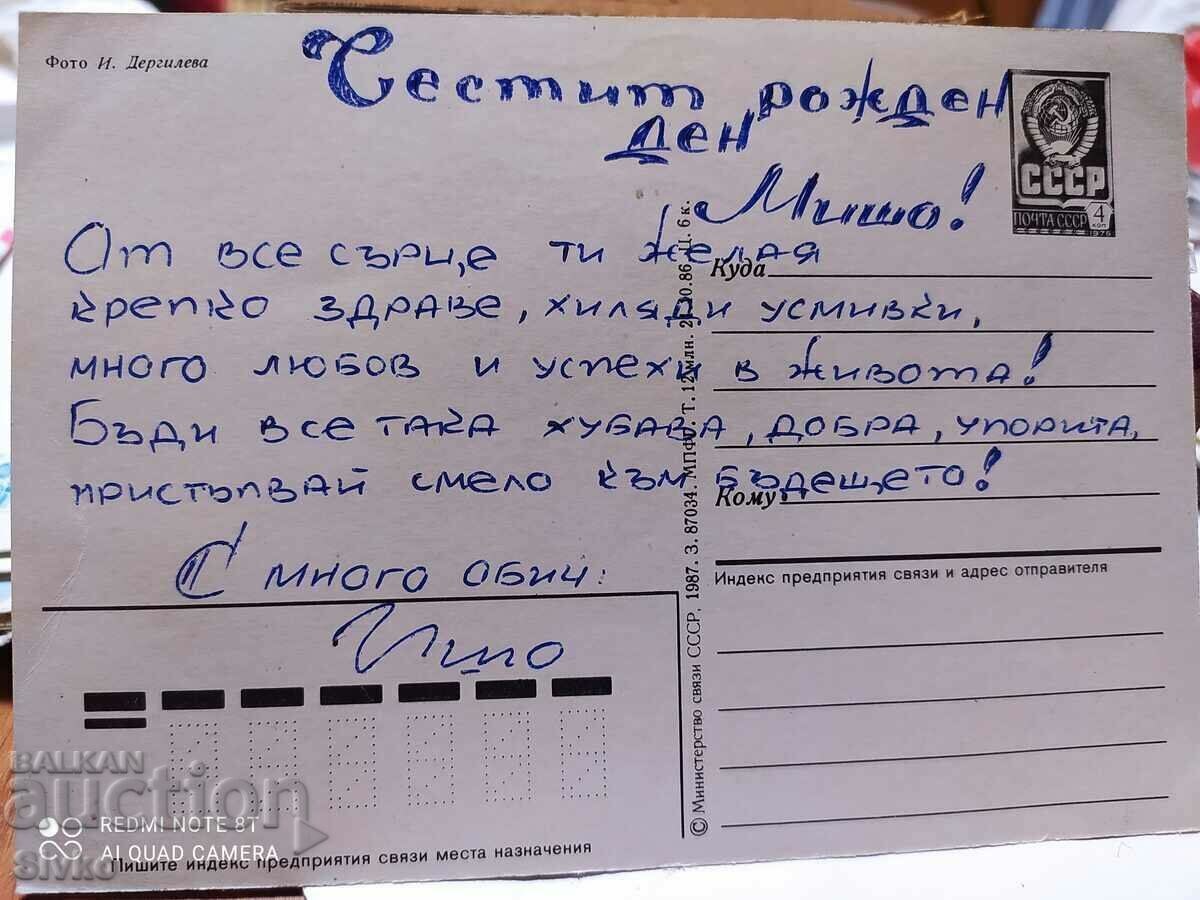 Фото И. Дергилева
Честит рожден
ден
Мишо!
От все сърце ти желая
крепко здраве, хиляди усмивки,
много любов и успехи в живота!
Бъди все така хубава, добра, упорита,
пристъпвай смело към бъдещето!
С много обич:
СССР
ПОЧТА СССР 4 КОП
1976
Куда
Кому
Индекс предприятия связи и адрес отправителя
© Министерство связи СССР, 1987. З. 87034. МПФГ. Т. 12 млн. 10.86. Ц. 6 к.
Пишите индекс предприятия связи места назначения
BALKAN
auction
REDMI NOTE 8T
AI QUAD CAMERA
Sivko